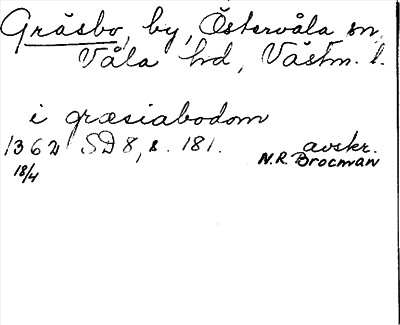 Gräsbo, by, Östervåla sn,
Våla hd, Västm. l.
i græsiabodom
1362 SD 8, s. 181. avskr.
18/4 N.R. Brocman